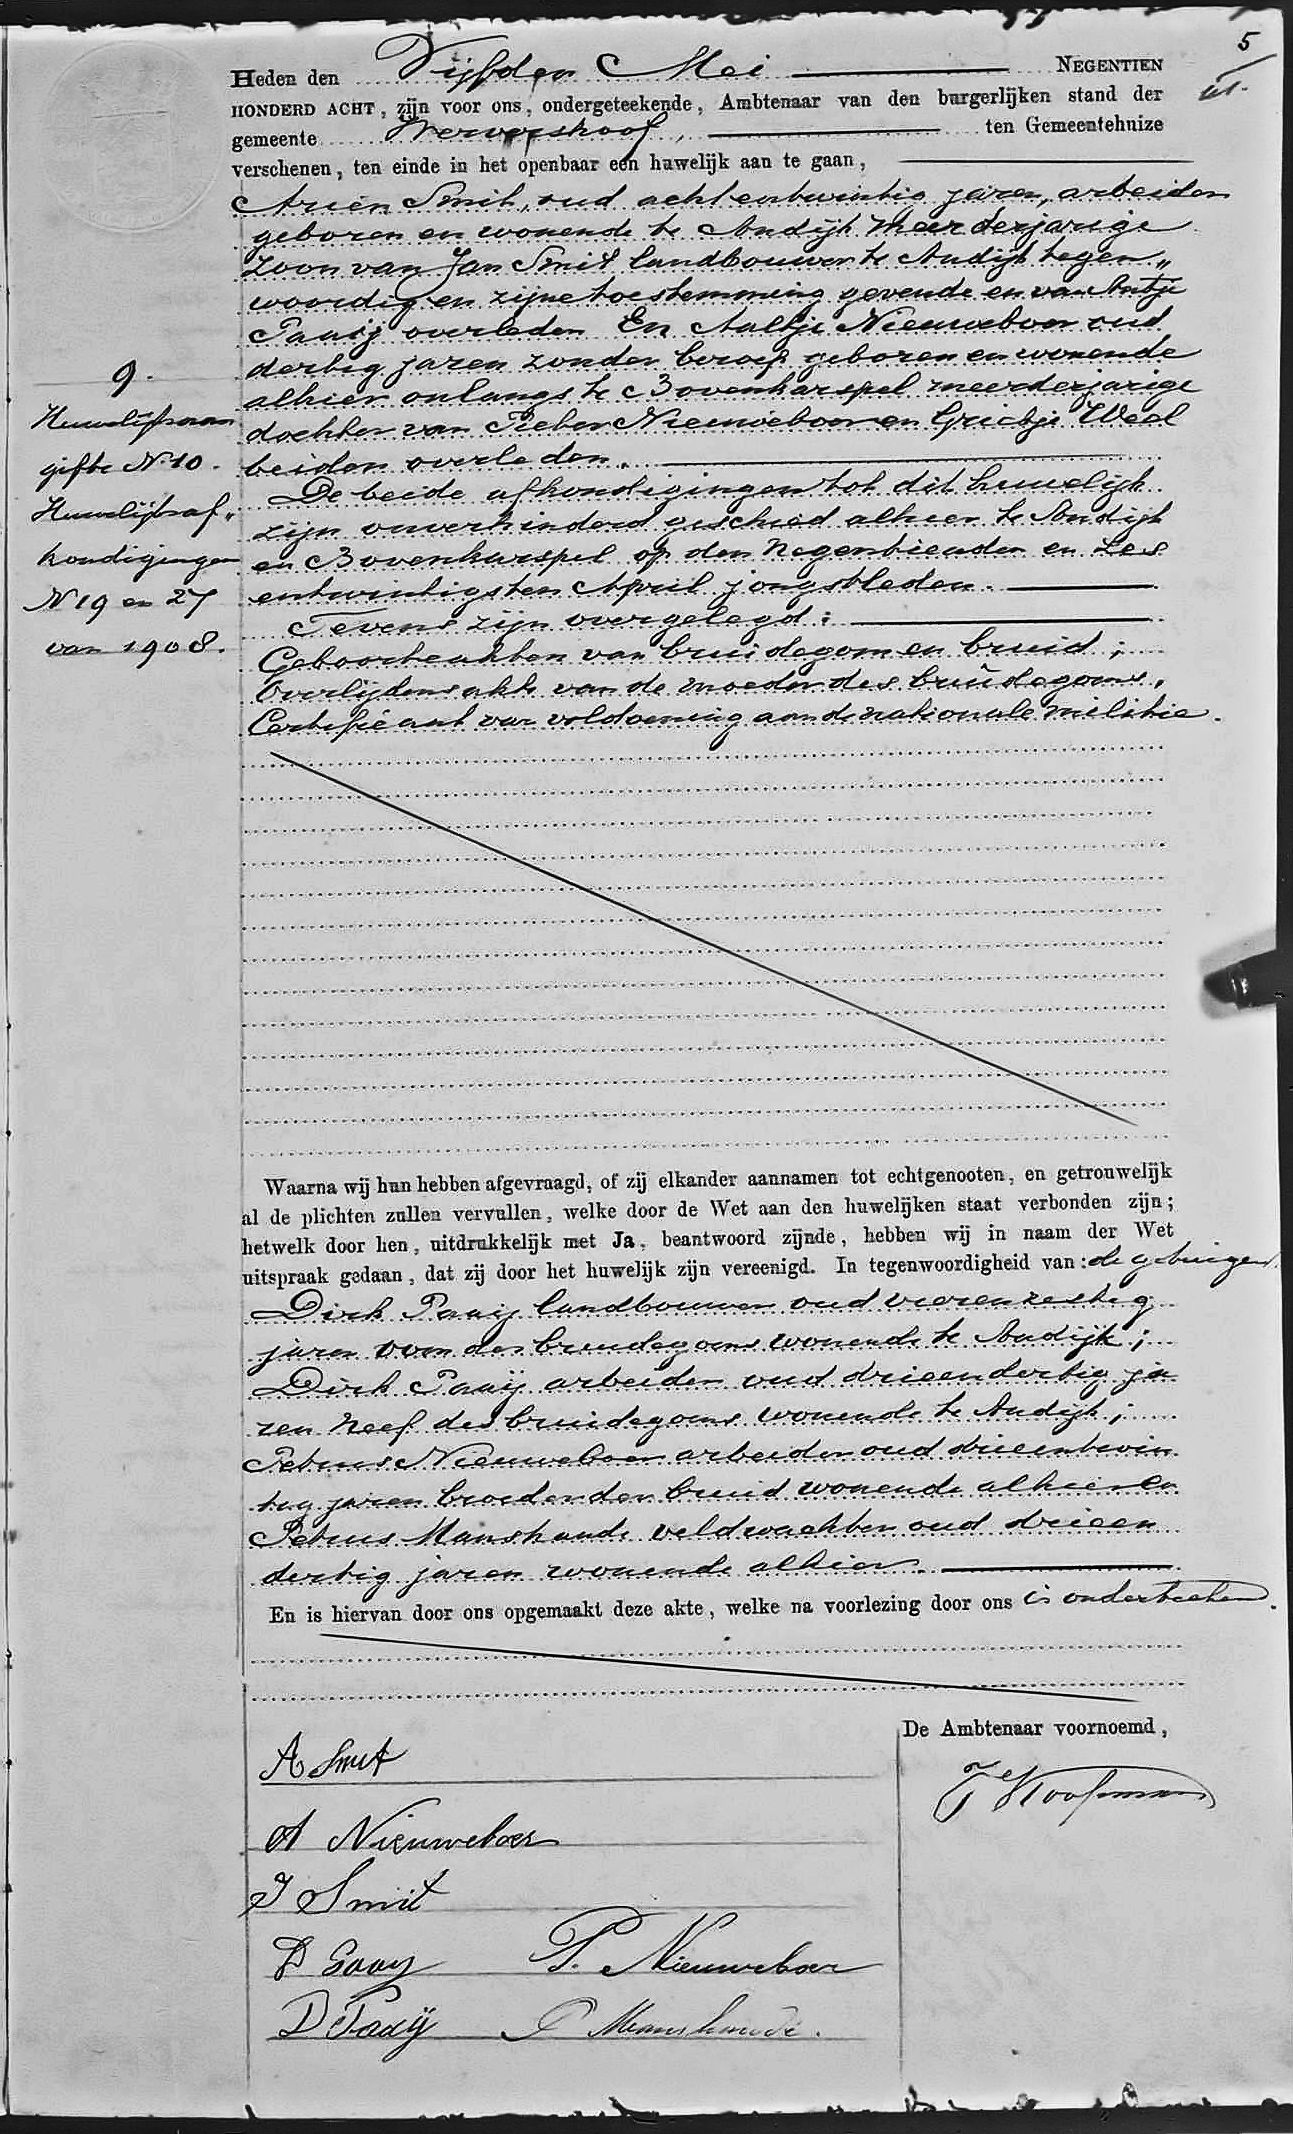 5
Heden den Vijfden Mei NEGENTIEN
HONDERD ACHT, zijn voor ons, ondergeteekende, Ambtenaar van den burgerlijken stand der
gemeente Wervershoof, ten Gemeentehuize
verschenen, ten einde in het openbaar een huwelijk aan te gaan,
Arien Smit, oud achtentwintig jaren, arbeider
geboren en wonende te Andijk meerderjarige
zoon van Jan Smit landbouwer te Andijk tegen„
woordig en zijne toestemming gevende en van Antje
Paaij overleden En Aaltje Nieuweboer oud
dertig jaren zonder beroep geboren en wonende
alhier onlangs te Bovenkarspel meerderjarige
dochter van Pieter Nieuweboer en Grietje Weel
beiden overleden.
De beide afkondigingen tot dit huwelijk
zijn onverhinderd geschied alhier te Andijk
en Bovenkarspel op den negentienden en zes
entwintigsten April jongstleden.
Tevens zijn overgelegd:
Geboorteakten van bruidegom en bruid;
Overlijdensakte van de moeder des bruidegoms,
Certificaat van voldoening aan de nationale militie.
9.
Huwelijksaan
gifte N. 10.
Huwelijksaf„
kondigingen
N 19 en 27
van 1908.
Waarna wij hun hebben afgevraagd, of zij elkander aannamen tot echtgenooten, en getrouwelijk
al de plichten zullen vervullen, welke door de Wet aan den huwelijken staat verbonden zijn;
hetwelk door hen, uitdrukkelijk met Ja, beantwoord zijnde, hebben wij in naam der Wet
uitspraak gedaan, dat zij door het huwelijk zijn vereenigd. In tegenwoordigheid van: de getuigen
Dirk Paaij landbouwer oud vierenzestig
jaren oom des bruidegoms wonende te Andijk;
Dirk Paaij arbeider oud drieendertig ja
ren neef des bruidegoms wonende te Andijk;
Petrus Nieuweboer arbeider oud drieentwin
tig jaren broeder der bruid wonende alhier en
Petrus Manshande veldwachter oud drieen
dertig jaren wonende alhier.
En is hiervan door ons opgemaakt deze akte, welke na voorlezing door ons is onderteekend.
De Ambtenaar voornoemd,
A Smit
J Koopman
A Nieuweboer
J Smit
D Paaij P. Nieuweboer
D Paaij P Manshande.